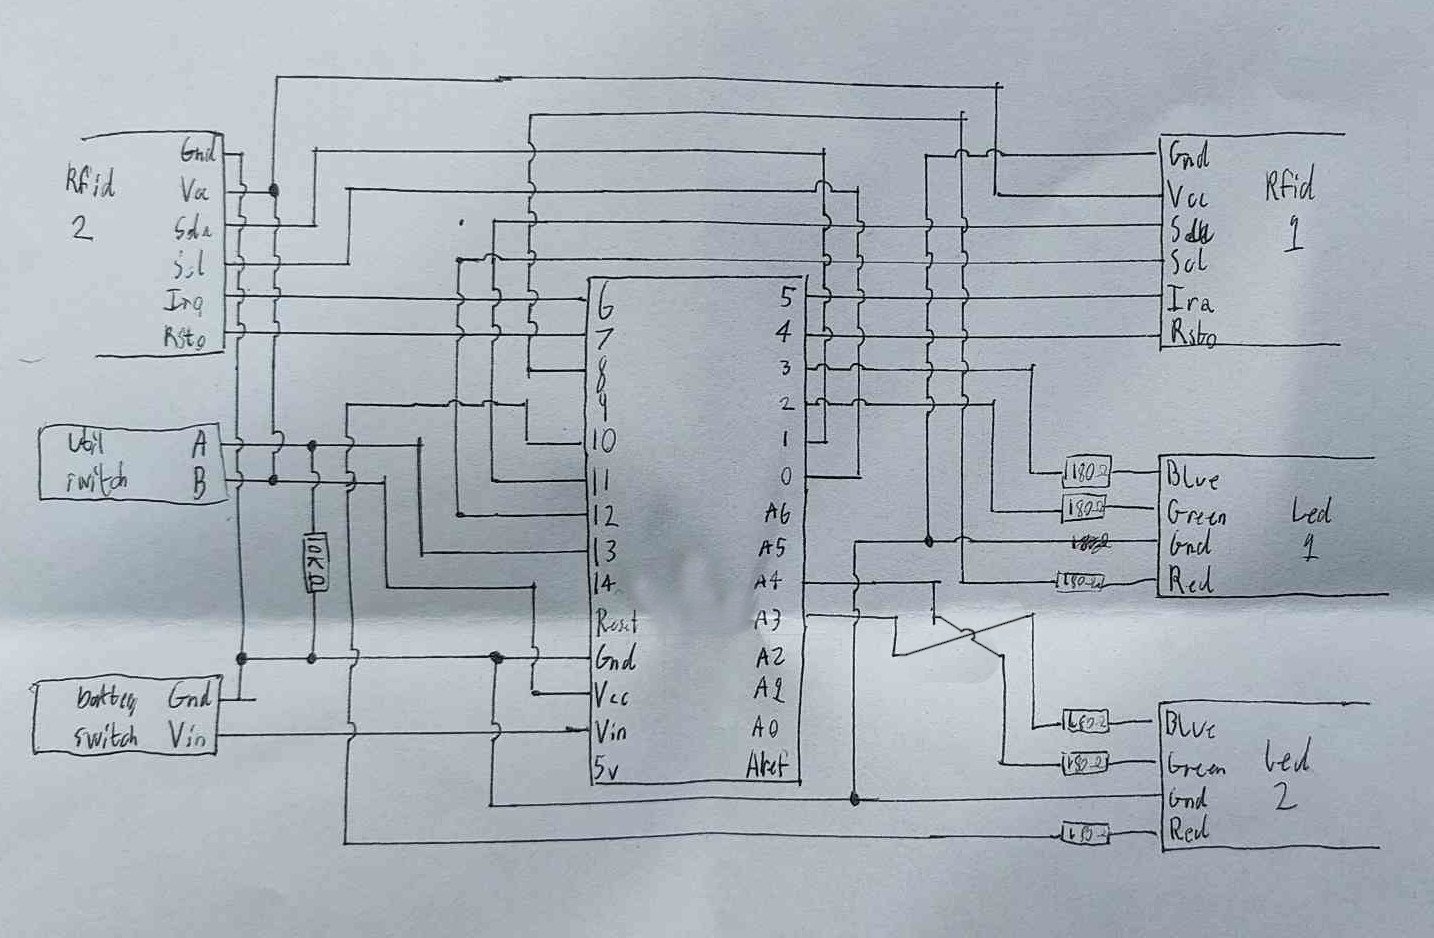 Rfid
2
Gnd
Vcc
Sda
Scl
Irq
Rsto
Util
switch
A
B
10KΩ
battery
switch
Gnd
Vin
6
7
8
9
10
11
12
13
14
Reset
Gnd
Vcc
Vin
5v
5
4
3
2
1
0
A6
A5
A4
A3
A2
A1
A0
Aref
Gnd
Vcc
Sda
Scl
Irq
Rsto
Rfid
1
180Ω
180Ω
180Ω
Blue
Green
Gnd
Red
Led
1
180Ω
180Ω
180Ω
Blue
Green
Gnd
Red
Led
2